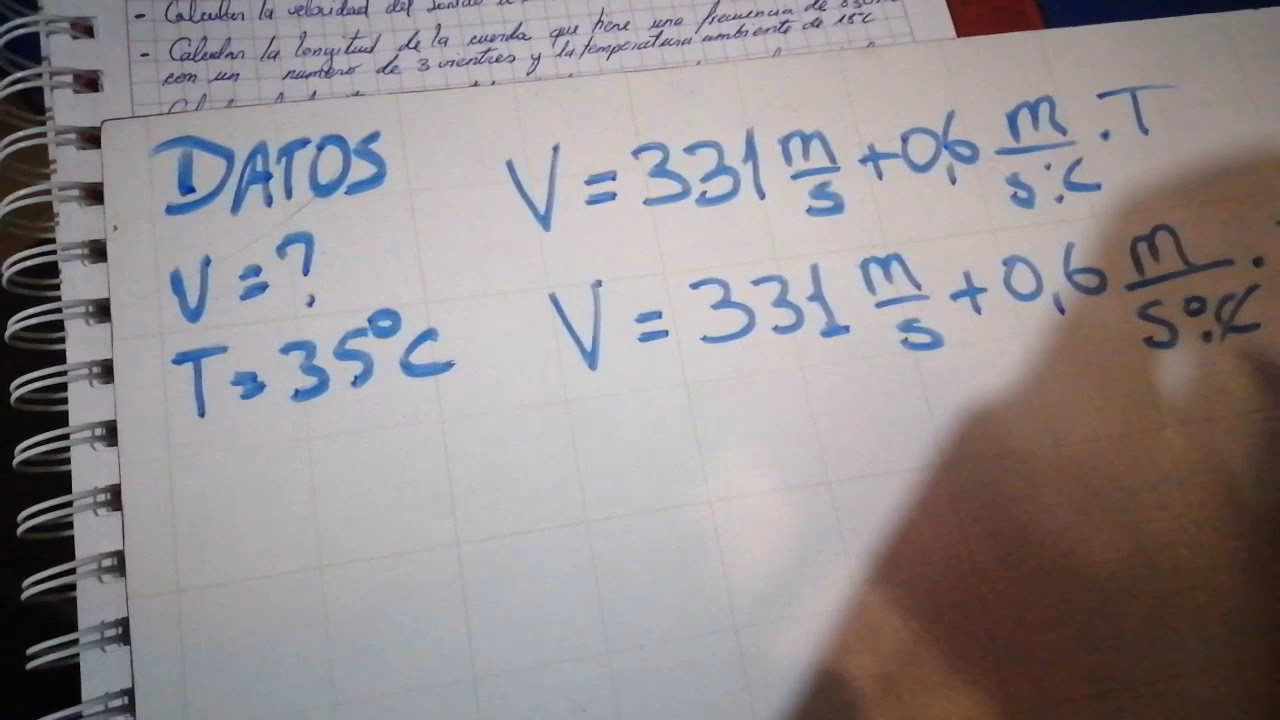 - Calcular la velocidad del sonido
- Calcular la longitud de la cuerda que tiene una frecuencia de
con un numero de 3 vientres y la temperatura ambiente de 15°C
DATOS
V = ?
T = 35°C
V = 331 m/s + 0,6 m/s.°C . T
V = 331 m/s + 0,6 m/s.°C .